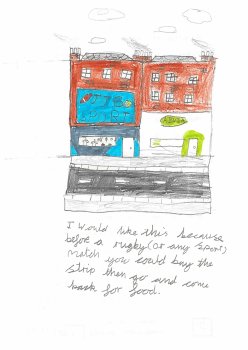 I would like this because
before a rugby (or any sport)
match you could buy the
strip then go and come
back for food.